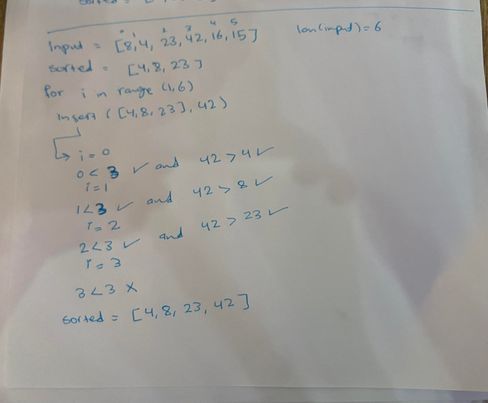 sorted = [
0 1 2 3 4 5
Input = [8, 4, 23, 42, 16, 15] len(input) = 6
sorted = [4, 8, 23]
for i in range (1, 6)
insert ([4, 8, 23], 42)
i = 0
0 < 3 ✓ and 42 > 4 ✓
i = 1
1 < 3 ✓ and 42 > 8 ✓
i = 2
2 < 3 ✓ and 42 > 23 ✓
i = 3
3 < 3 ×
sorted = [4, 8, 23, 42]